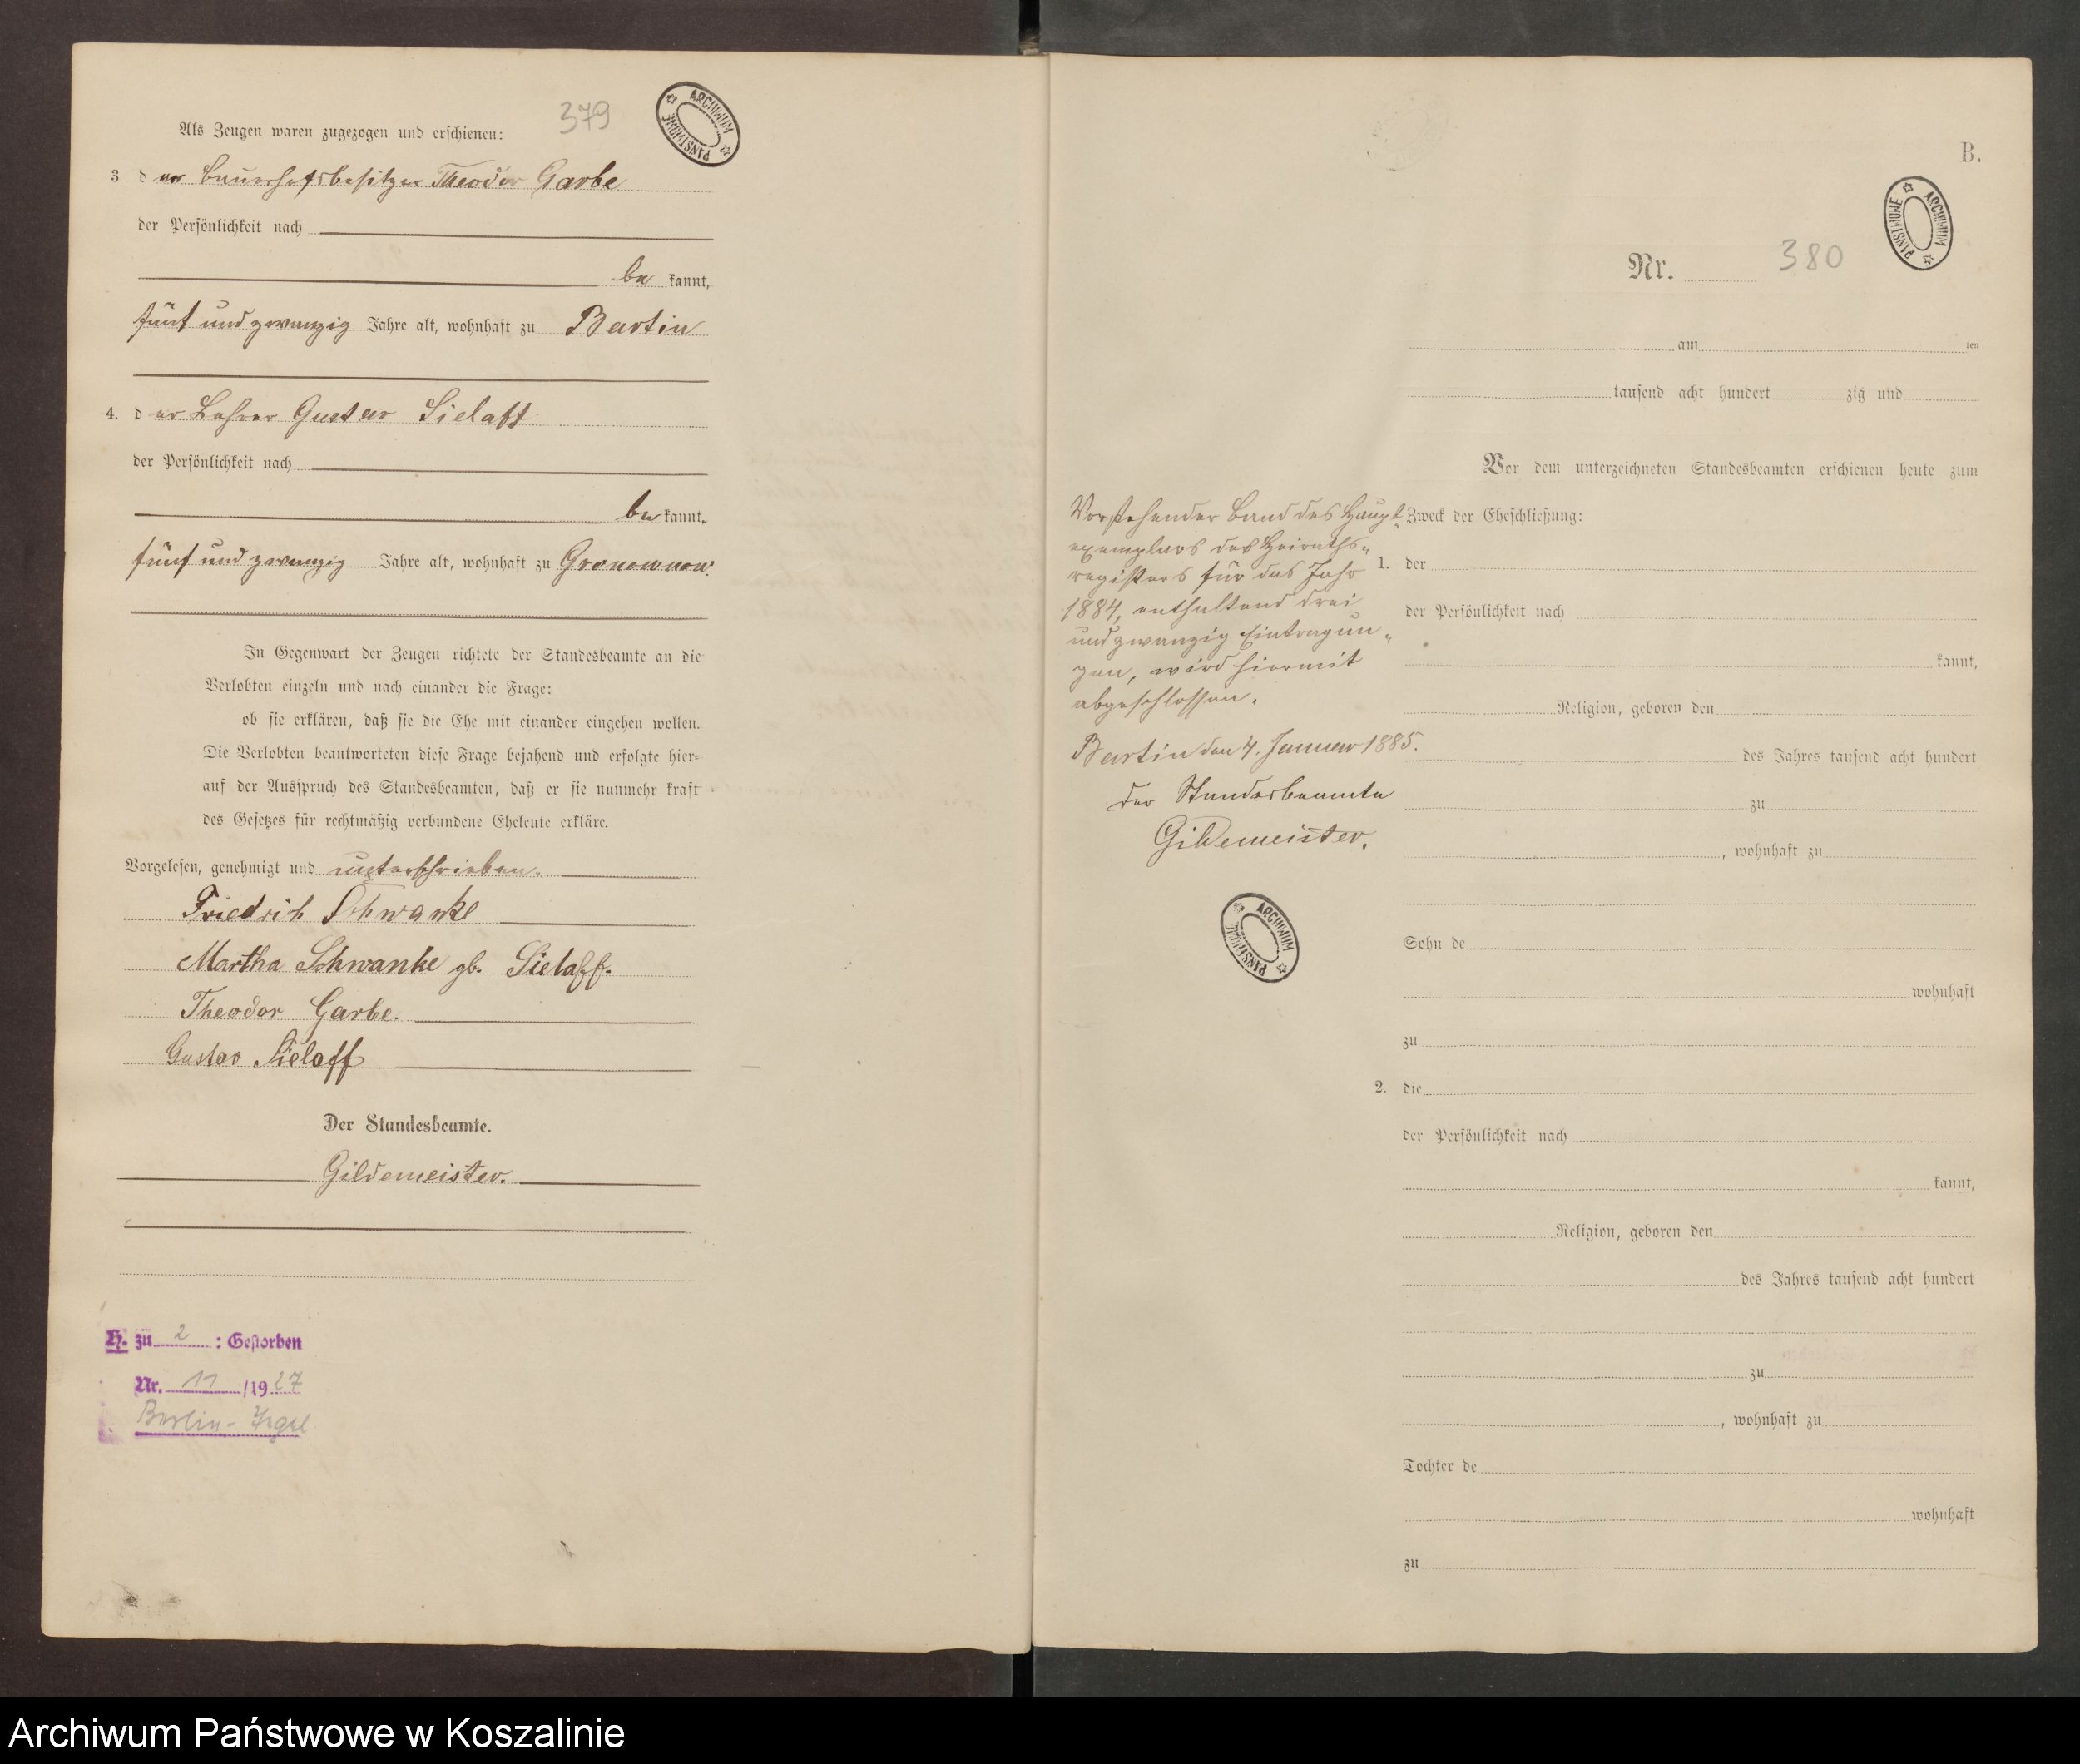 379
ARCHIWUM PAŃSTWOWE
Als Zeugen waren zugezogen und erschienen:
3. der Bauerhofsbesitzer Theodor Garbe
der Persönlichkeit nach
be kannt,
fünf und zwanzig Jahre alt, wohnhaft zu Bartin
4. der Lehrer Gustav Sielaff
der Persönlichkeit nach
be kannt.
fünf und zwanzig Jahre alt, wohnhaft zu
In Gegenwart der Zeugen richtete der Standesbeamte an die
Verlobten einzeln und nach einander die Frage:
ob sie erklären, daß sie die Ehe mit einander eingehen wollen.
Die Verlobten beantworteten diese Frage bejahend und erfolgte hier-
auf der Ausspruch des Standesbeamten, daß er sie nunmehr kraft
des Gesetzes für rechtmäßig verbundene Eheleute erkläre.
Vorgelesen, genehmigt und unterschrieben.
Friedrich Schwanke
Martha Schwanke gb. Sielaff.
Theodor Garbe.
Gustav Sielaff
Der Standesbeamte.
Gildemeister.
H. zu 2 : Gestorben
Nr. 11 /1927
Berlin-Tegel
B.
ARCHIWUM PAŃSTWOWE
Nr. 380
am ten
tausend acht hundert zig und
Vor dem unterzeichneten Standesbeamten erschienen heute zum
Zweck der Eheschließung:
1. der
der Persönlichkeit nach
kannt,
Religion, geboren den
des Jahres tausend acht hundert
zu
, wohnhaft zu
Sohn de
wohnhaft
zu
2. die
der Persönlichkeit nach
kannt,
Religion, geboren den
des Jahres tausend acht hundert
zu
, wohnhaft zu
Tochter de
wohnhaft
zu
Vorstehender Band des Haupt-
exemplars des Heiraths-
registers für das Jahr
1884, enthaltend drei
und zwanzig Eintragun-
gen, wird hiermit
abgeschlossen.
Bartin den 4. Januar 1885.
Der Standesbeamte
Gildemeister.
ARCHIWUM PAŃSTWOWE
Archiwum Państwowe w Koszalinie